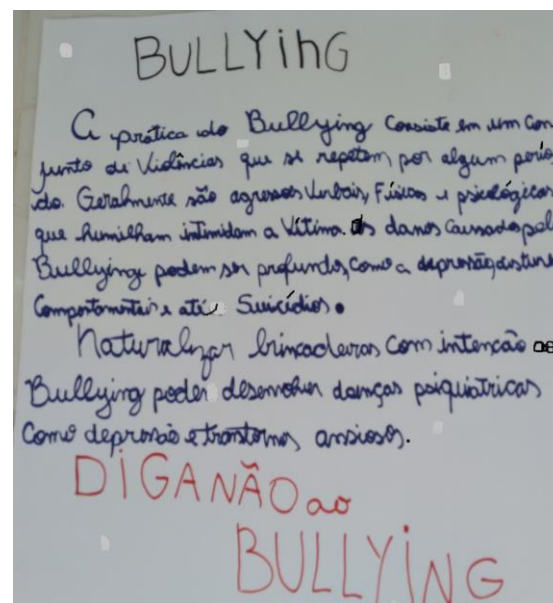 BULLYiNG
A prática do Bullying Consiste em um Con
junto de Violências que se repetem por algum perío
do. Geralmente são agressões Verbais, Físicas e psicológicas
que humilham intimidam a Vítima. Os danos Causados pel
Bullying podem ser profundos, como a depressão, distúrb
Comportamentais e até Suicídios.
Naturalizar brincadeiras Com intenção de
Bullying poder desenvolver doenças psiquiatricas
Como depressão e transtornos ansiosos.
DiGA NÃO ao
BULLYiNG